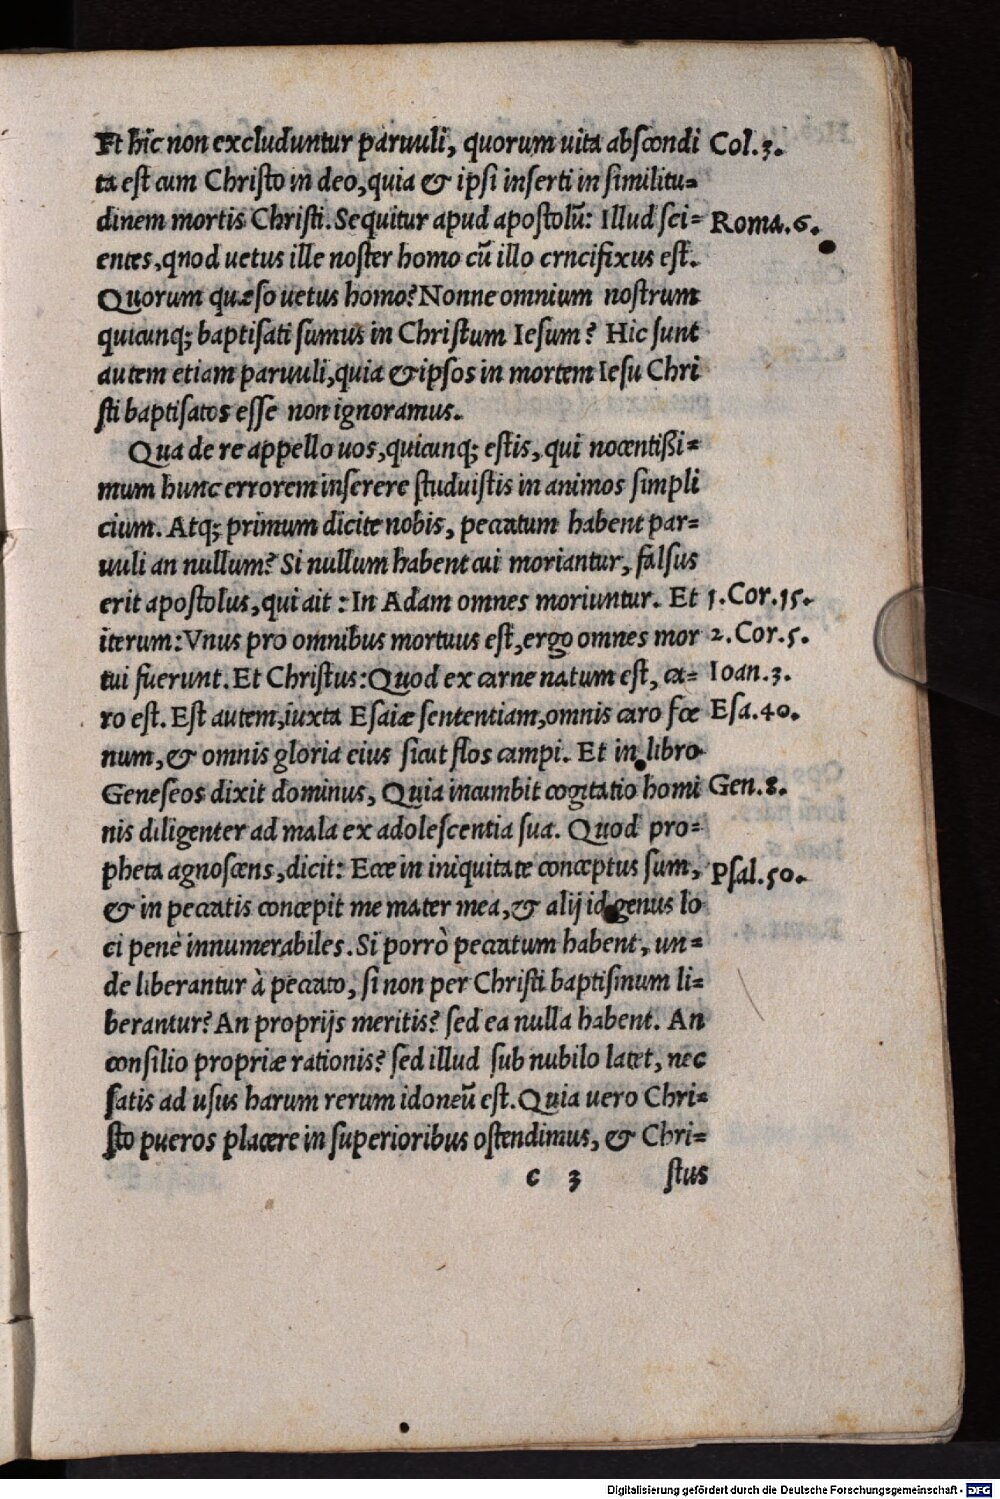 Et hic non excluduntur paruuli, quorum uita abscondi Col.3.
ta est cum Christo in deo, quia & ipsi inserti in similitu=
dinem mortis Christi. Sequitur apud apostolū: Illud sci= Roma.6.
entes, qnod uetus ille noster homo cū illo crncifixus est.
Quorum quæso uetus homo? Nonne omnium nostrum
quicunq; baptisati sumus in Christum Iesum? Hic sunt
autem etiam paruuli, quia & ipsos in mortem Iesu Chri
sti baptisatos esse non ignoramus.
Qua de re appello uos, quicunq; estis, qui nocentißi=
mum hunc errorem inserere studuistis in animos simpli
cium. Atq; primum dicite nobis, peccatum habent par=
uuli an nullum? Si nullum habent cui moriantur, falsus
erit apostolus, qui ait: In Adam omnes moriuntur. Et 1.Cor.15.
iterum: Vnus pro omnibus mortuus est, ergo omnes mor 2.Cor.5.
tui fuerunt. Et Christus: Quod ex carne natum est, ca= Ioan.3.
ro est. Est autem, iuxta Esaiæ sententiam, omnis caro fœ Esa.40.
num, & omnis gloria eius sicut flos campi. Et in libro
Geneseos dixit dominus, Quia incumbit cogitatio homi Gen.8.
nis diligenter ad mala ex adolescentia sua. Quod pro=
pheta agnoscens, dicit: Ecce in iniquitate conceptus sum, Psal.50.
& in peccatis concepit me mater mea, & alij id genus lo
ci penè innumerabiles. Si porrò peccatum habent, un=
de liberantur à peccato, si non per Christi baptismum li=
berantur? An proprijs meritis? sed ea nulla habent. An
consilio propriæ rationis? sed illud sub nubilo latet, nec
satis ad usus harum rerum idoneū est. Quia uero Chri=
sto pueros placere in superioribus ostendimus, & Chri=
c 3 stus
Digitalisierung gefördert durch die Deutsche Forschungsgemeinschaft - DFG